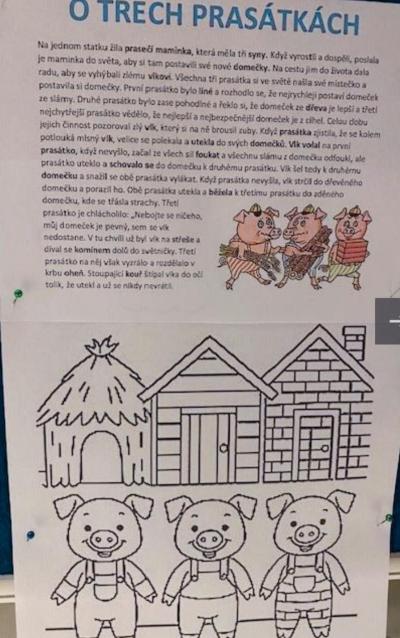 O TŘECH PRASÁTKÁCH
Na jednom statku žila prasečí maminka, která měla tři syny. Když vyrostli a dospěli, poslala
je maminka do světa, aby si tam postavili své nové domečky. Na cestu jim do života dala
radu, aby se vyhýbali zlému vlkovi. Všechna tři prasátka si ve světě našla své místečko a
postavila si domečky. První prasátko bylo líné a rozhodlo se, že nejrychleji postaví domeček
ze slámy. Druhé prasátko bylo zase pohodlné a řeklo si, že domeček ze dřeva je lepší a třetí
nejchytřejší prasátko vědělo, že nejlepší a nejbezpečnější domeček je z cihel. Celou dobu
jejich činnost pozoroval zlý vlk, který si na ně brousil zuby. Když prasátka zjistila, že se kolem
potlouká mlsný vlk, velice se polekala a utekla do svých domečků. Vlk volal na první
prasátko, když nevyšlo, začal ze všech sil foukat a všechnu slámu z domečku odfoukl, ale
prasátko uteklo a schovalo se do domečku k druhému prasátku. Vlk šel tedy k druhému
domečku a snažil se obě prasátka vylákat. Když prasátka nevyšla, vlk strčil do dřevěného
domečku a porazil ho. Obě prasátka utekla a běžela k třetímu prasátku do zděného
domečku, kde se třásla strachy. Třetí
prasátko je chlácholilo: „Nebojte se ničeho,
můj domeček je pevný, sem se vlk
nedostane. V tu chvíli už byl vlk na střeše a
díval se komínem dolů do světničky. Třetí
prasátko na něj však vyzrálo a rozdělalo v
krbu oheň. Stoupající kouř štípal vlka do očí
tolik, že utekl a už se nikdy nevrátil.